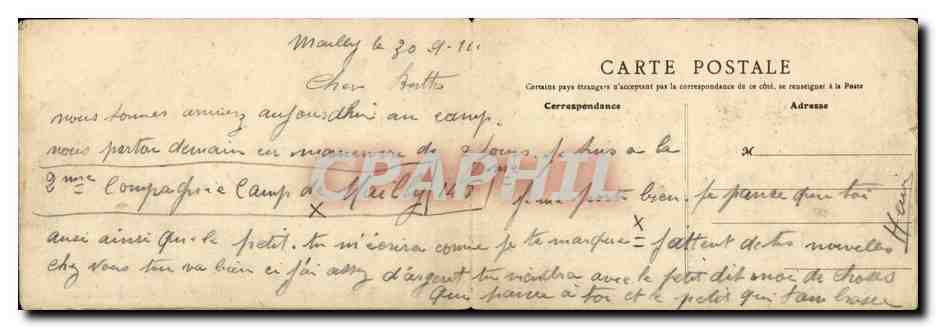 Mailly le 30 9-11
Cher Berthe
CARTE POSTALE
Certains pays étrangers n'acceptent pas la correspondance de ce côté, se renseigner à la Poste
Correspondance
Adresse
nous sommes arrivez aujourdhui au camp.
nous parton demain en manœuvre de 2 jours. je suis a la
2me Compagnie Camp de Mailly
je me porte bien. je pance que toi
ausi ainsi que le petit. tu m'écrira comme je te marque = j'attent de tes nouvelles
chez vous tou va bien ci j'ai assez d'argent tu viendra avec le petit dit moi de choses
Qui pance à toi et le petit qui t'ambrasse
Henri
CPAPHIL